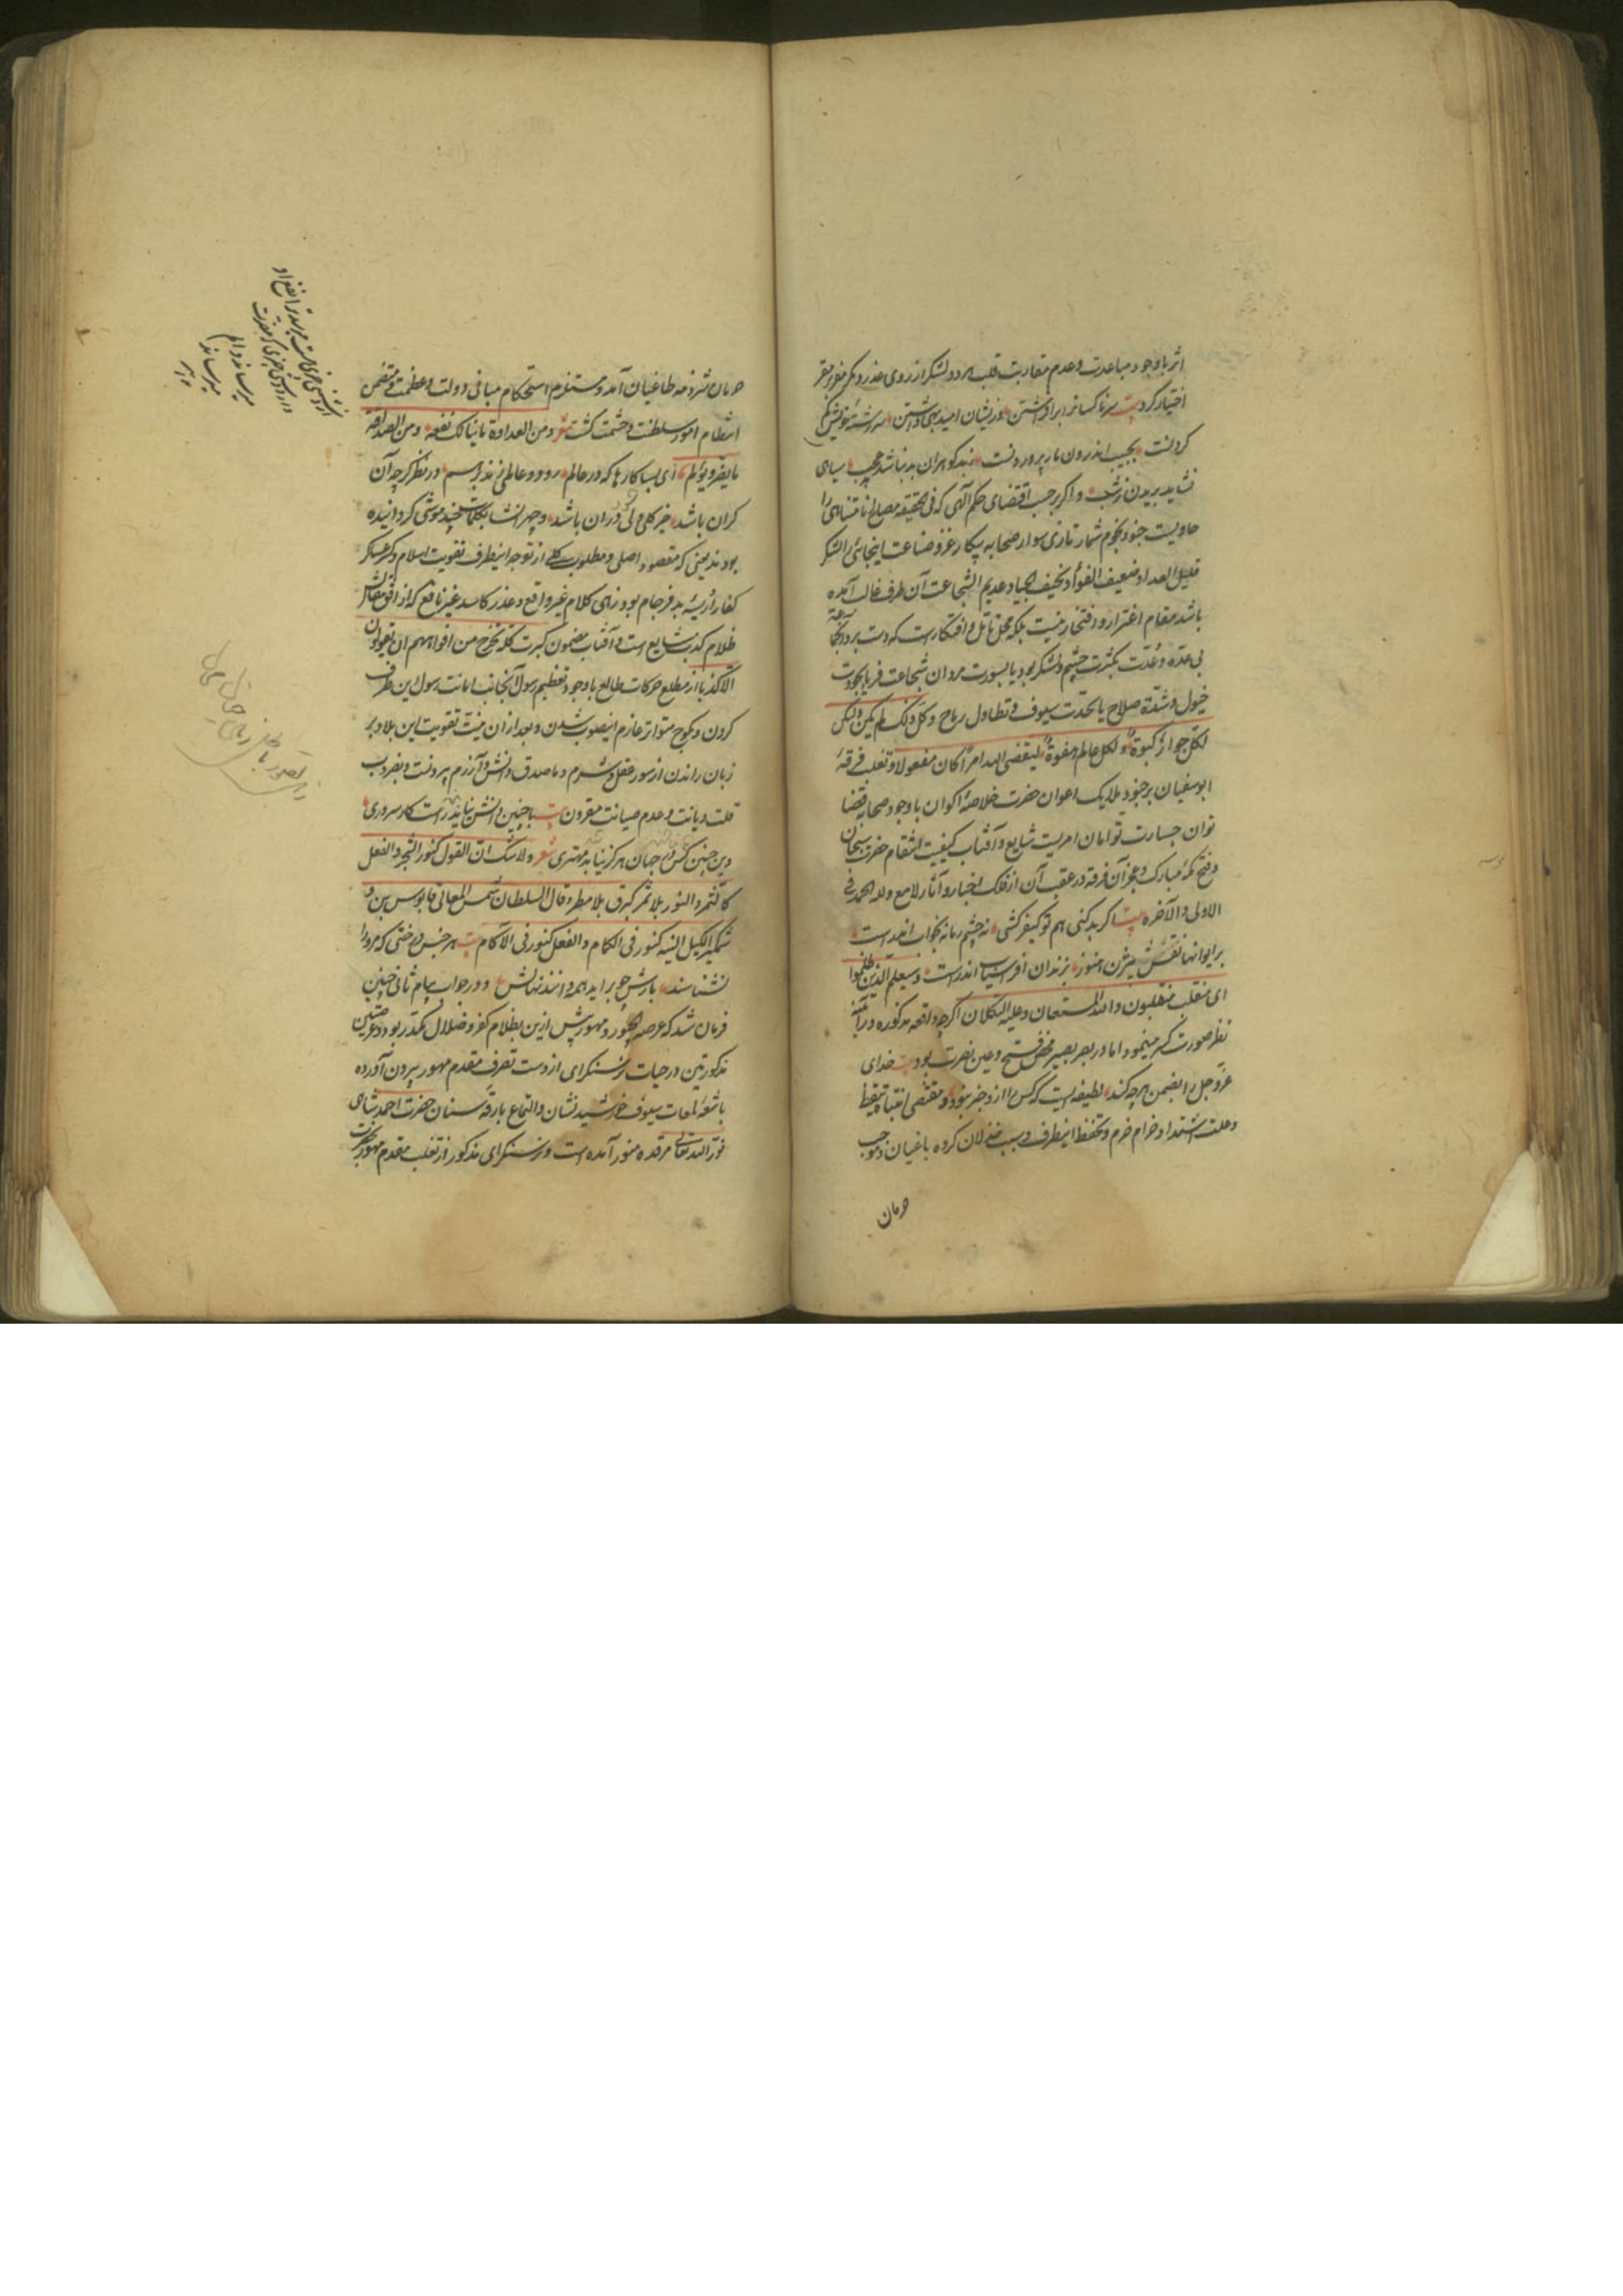 اثر باوجود مباعدت وعدم مقاربت قلب هر دو لشکر از روی عذر ومکر مفر بر مقر
اختیار کرد بیت سر ناکسانرا برافراشتن وزیشان امید بهی داشتن سر رشته خویش کم
کردنت بجیب اندرون مار پروردنت ز بدکوهران بد نباشد عجب سیاهی
نشاید بریدن ز شب و اکر بر حسب اقتضای حکم آلهی که فی الحقیقه مصالح نامتناهی را
حاویست جنود نجوم شمار تازی سوار صحابه پیکار غزو صناعت اینجائی را لشکر
قلیل العداد ضعیف الفواد نحیف الجیاد عدیم الشجاعت آن طرف غالب آمده
باشد مقام اغترار و افتخار نیست بلکه محل تامل و افتکار است که دست برد آنجماعة
بی عده وعدت بکثرت حشم و لشکر بود یا بسورت مردان شجاعت فر یا بجودت
خیول وشدة صلاح یا بحدت سیوف و تطاول رماح وکل ذلک لم یکن ولکن
لکل جواد کبوة و لکل عالم هفوة لیقضی الله امرا کان مفعولا و تغلب فرقهٔ
ابوسفیان بر جنود ملایک اعوان حضرت خلاصهٔ اکوان باوجود صحابه قضا
توان جسارت توامان امریست شایع و آفتاب کیفیت انتقام حضرت سبحان
و فتح مکهٔ مبارک و عجز آن فرقه در عقب آن از فلک اخبار و آثار لامع وله الحمد فی
الاولی والآخره بیت اکر بد کنی هم تو کیفر کشی نه چشم زمانه بخواب اندرست
بر ایوانها نقش بیژن هنوز بزندان افراسیاب اندرست وسیعلم الذین ظلموا
ای منقلب ینقلبون والله المستعان وعلیه التکلان اکرچه واقعه مذکوره در آینه
نظر صورت کسر مینمود اما در بصر بصیر محض فتح وعین نصرت بود بیت خدای
عز وجل را بضمن هر چه کند لطیفه ایست که کس را از و خبر نبود و مقتضی انتباه و تیقظ
وعلت اشتداد خرام حزم و تحفظ اینطرف و سبب خذلان کروه باغیان و موجب
حرمان
حرمان شرذمه طاغیان آمد و مستلزم استحکام مبانی دولت وعظمت و متضمن
انتظام امور سلطنت وحشمت کشت شعر ومن العداوة ما ینالک نفعه ومن الصداقة
ما یضر ویؤلم ای بسا کارها که در عالم رود و عالمی زند برهم در نظر کرچه آن
کران باشد خیر کلی ولی در آن باشد و چهر انشا بکلمات چند موشی کردانیده
بودند یعنی که مقصود اصلی و مطلوب کلی از توجه اینطرف تقویت اسلام وکسر عساکر
کفار اریسه بد فرجام بود زهی کلام غیر واقع وعذر کاسد غیر نافع که از افق مقالش
ظلام کذب شایع است و آفتاب مضمون کبرت کلمة تخرج من افواههم ان یقولون
الا کذبا از مطلع حرکات طالع باوجود تعظیم رسول آنجانب اهانت رسول این طرف
کردن و بکوچ متواتر عازم اینصوب شدن وبعد از ان نیت تقویت این بلاد بر
زبان راندن از سور عقل و شرم وما صدق دانش و آزرم بیرونست و بضروب
قلت دیانت وعدم صیانت مقرون بیت با چنین دانش نیاید راست کار سروری
وین چنین کس در جهان هرکز نیابد مهتری شعر ولاشک ان القول کنور الشجر والفعل
کالثمر والنور بلا ثمر کبرق بلا مطر وقال السلطان شمس المعالی قابوس بن و
شمکیر الکیل النیة کنور فی الکمام والفعل کنور فی الاکام بیت هر جنس درختی که مر او را
نشناسند بارش چو براید همه دانند نهالش و در جواب پیام ثانی چنین
فرمان شد که عرصه ایلچپور و مهور پیش ازین بظلام کفر وضلال مکدر بود وعرصتین
مذکورتین در حیات نرسنکرای از دست تصرف مقدم مهور بیرون آورده
باشعهٔ لمعات سیوف خورشید نشان والتماع بارقه سنان حضرت احمد شاهی
نور الله تعالی مرقده منور آمده است و نرسنکرای مذکور از تغلب مقدم مهور بحضرت